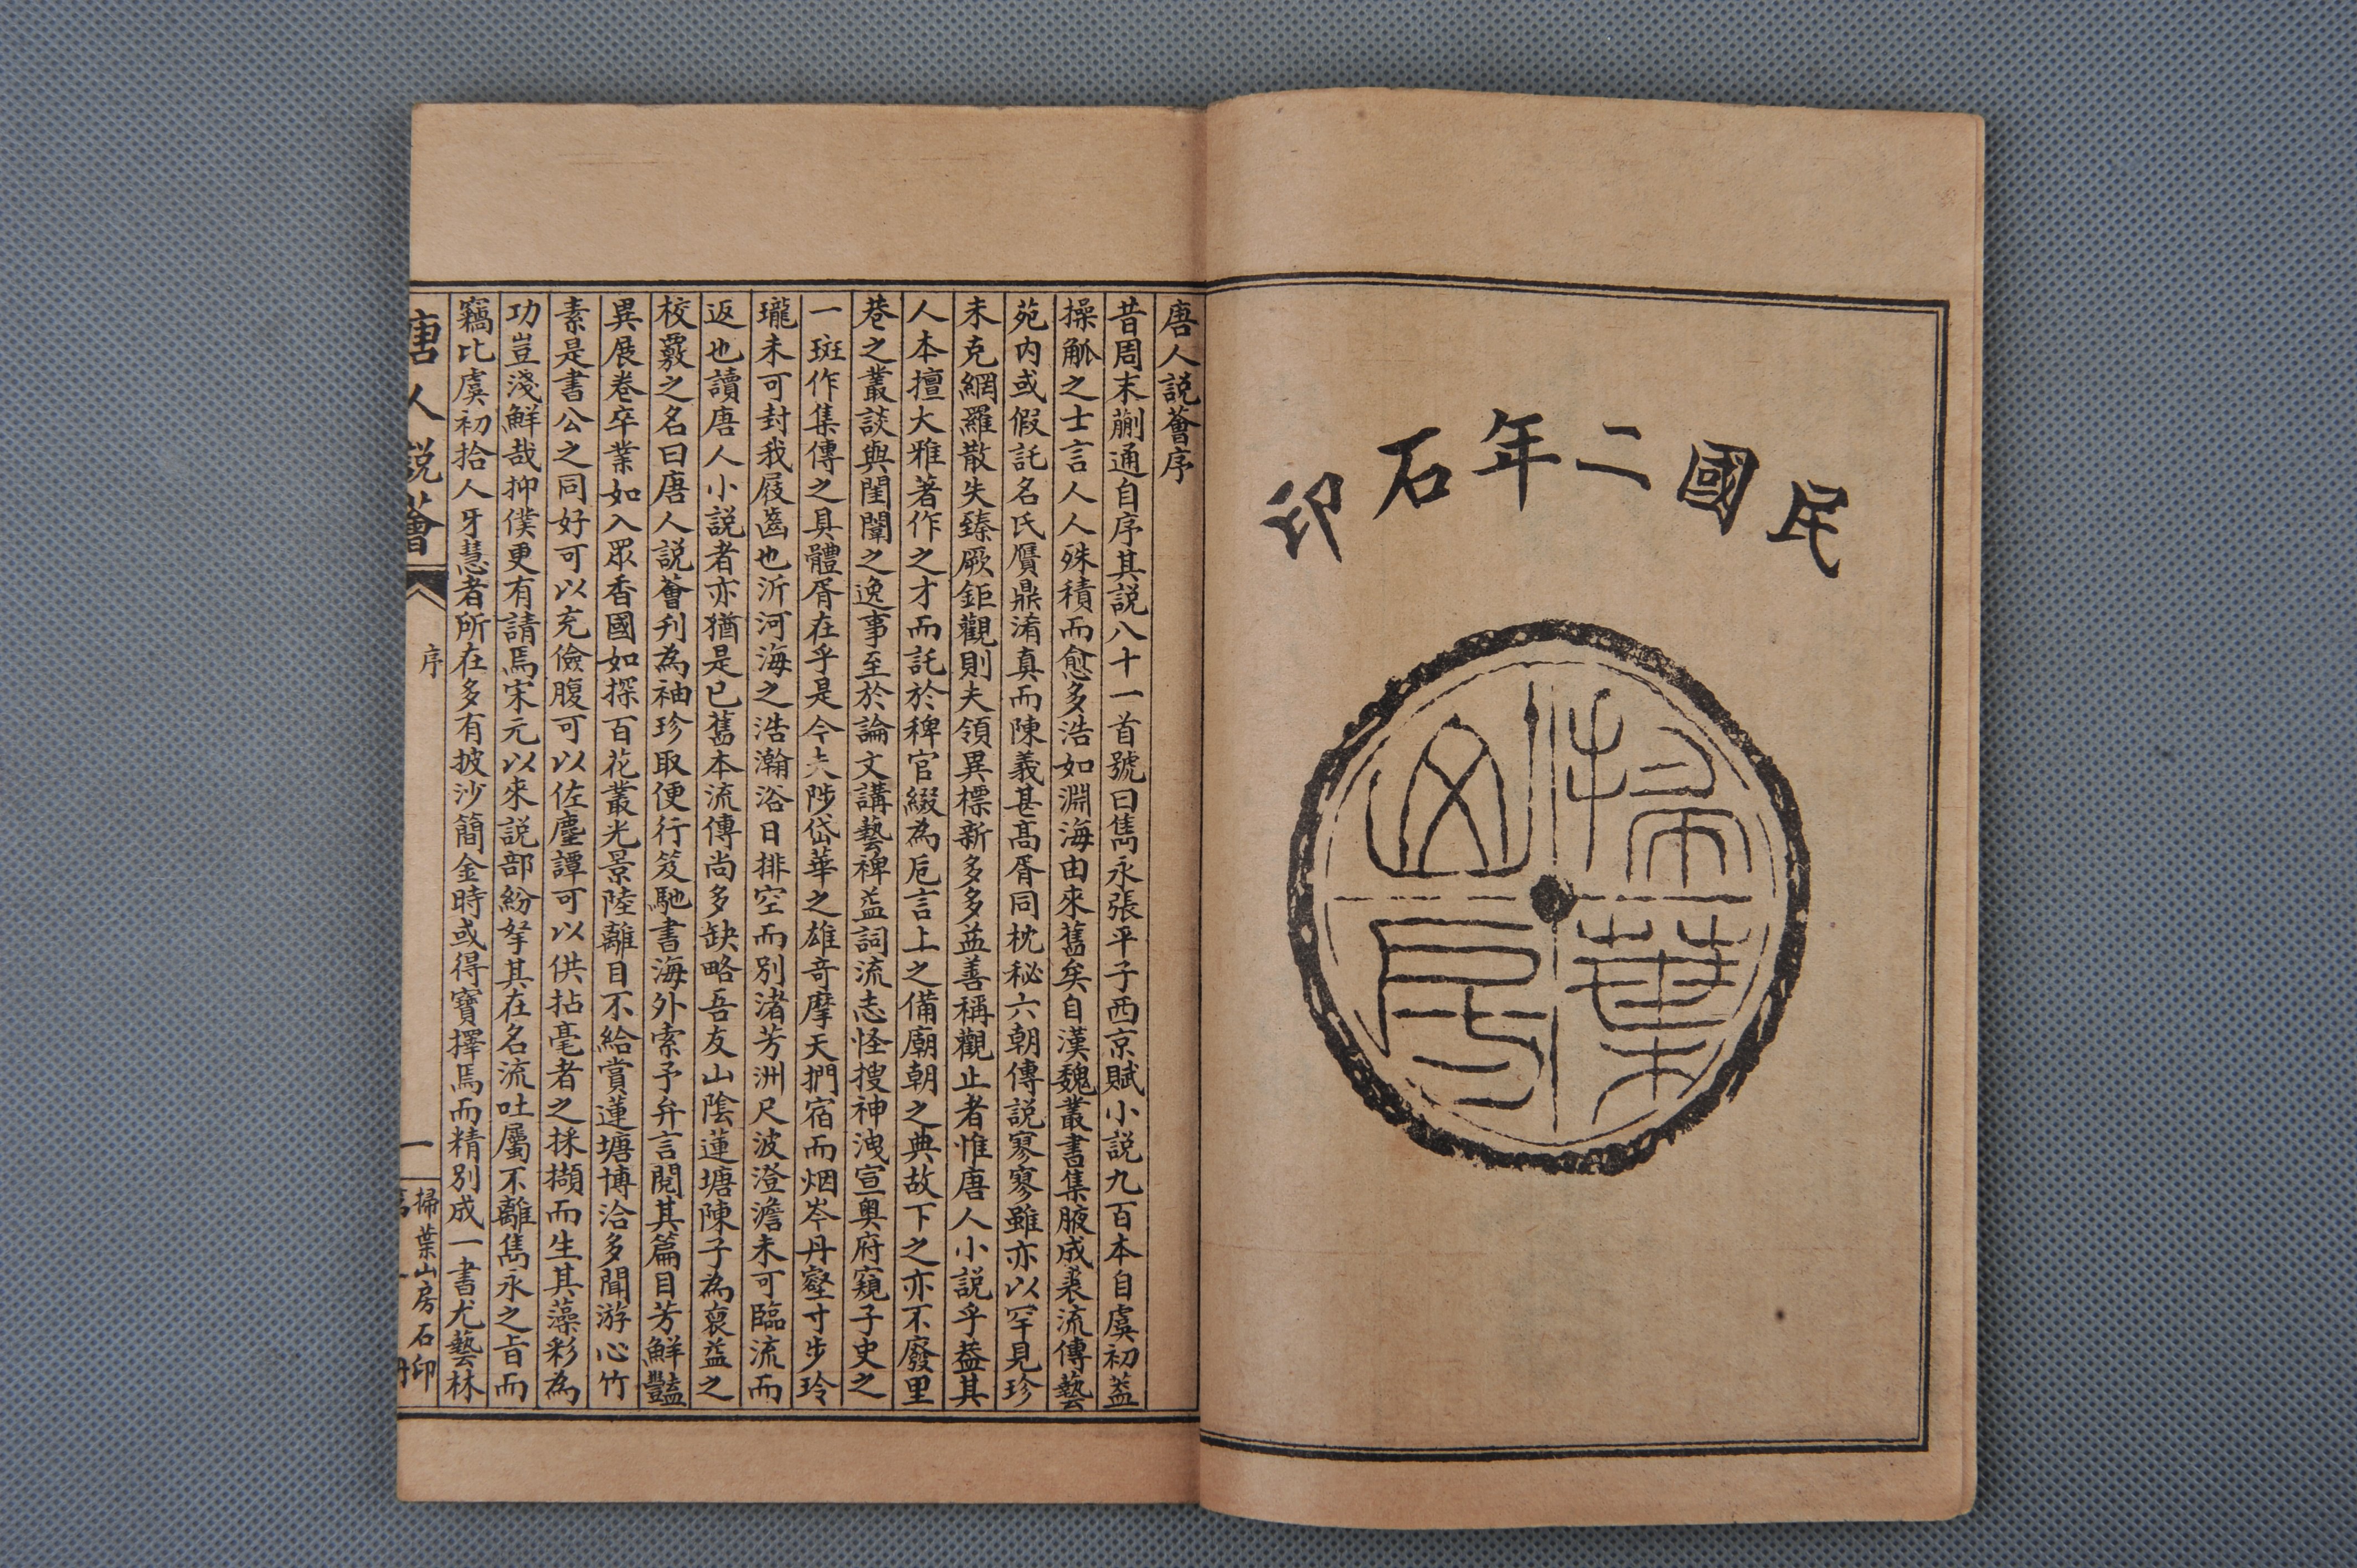 民國二年石印
掃葉山房
唐人説薈序
昔周末蒯通自序其説八十一首號曰雋永張平子西京賦小説九百本自虞初葢
操觚之士言人人殊積而愈多浩如淵海由來舊矣自漢魏叢書集腋成裘流傳藝
苑内或假託名氏贋鼎淆真而陳義甚高胥同枕秘六朝傳説寥寥雖亦以罕見珍
未克網羅散失臻厥鉅觀則夫領異標新多多益善稱觀止者惟唐人小説乎葢其
人本擅大雅著作之才而託於稗官綴為卮言上之備廟朝之典故下之亦不廢里
巷之叢談與閨闈之逸事至於論文講藝裨益詞流志怪搜神洩宣奥府窺子史之
一斑作集傳之具體胥在乎是今夫陟岱華之雄竒摩天捫宿而烟岑丹壑寸步玲
瓏未可封我屐齒也沂河海之浩瀚浴日排空而别渚芳洲尺波澄澹未可臨流而
返也讀唐人小説者亦猶是已舊本流傳尚多缺略吾友山陰蓮塘陳子為裒益之
校覈之名曰唐人説薈刋為袖珍取便行笈馳書海外索予弁言閲其篇目芳鮮豔
異展卷卒業如入眾香國如探百花叢光景陸離目不給賞蓮塘博洽多聞游心竹
素是書公之同好可以充儉腹可以佐麈譚可以供拈毫者之採擷而生其藻彩為
功豈淺鮮哉抑僕更有請焉宋元以來説部紛拏其在名流吐屬不離雋永之旨而
竊比虞初拾人牙慧者所在多有披沙簡金時或得寶擇焉而精别成一書尤藝林
唐人説薈
序
一
掃葉山房石印